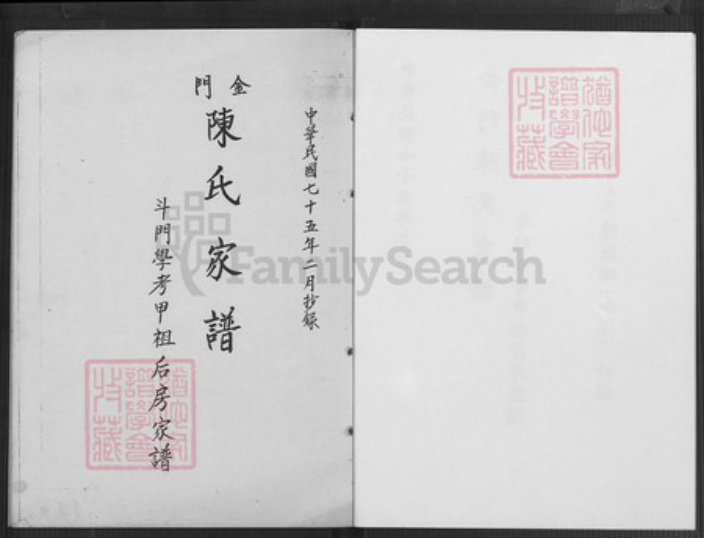 中華民國七十五年二月抄錄
金門
陳氏家譜
斗門學考甲祖后房家譜
FamilySearch
猶他家
譜學會
收藏
猶他家
譜學會
收藏